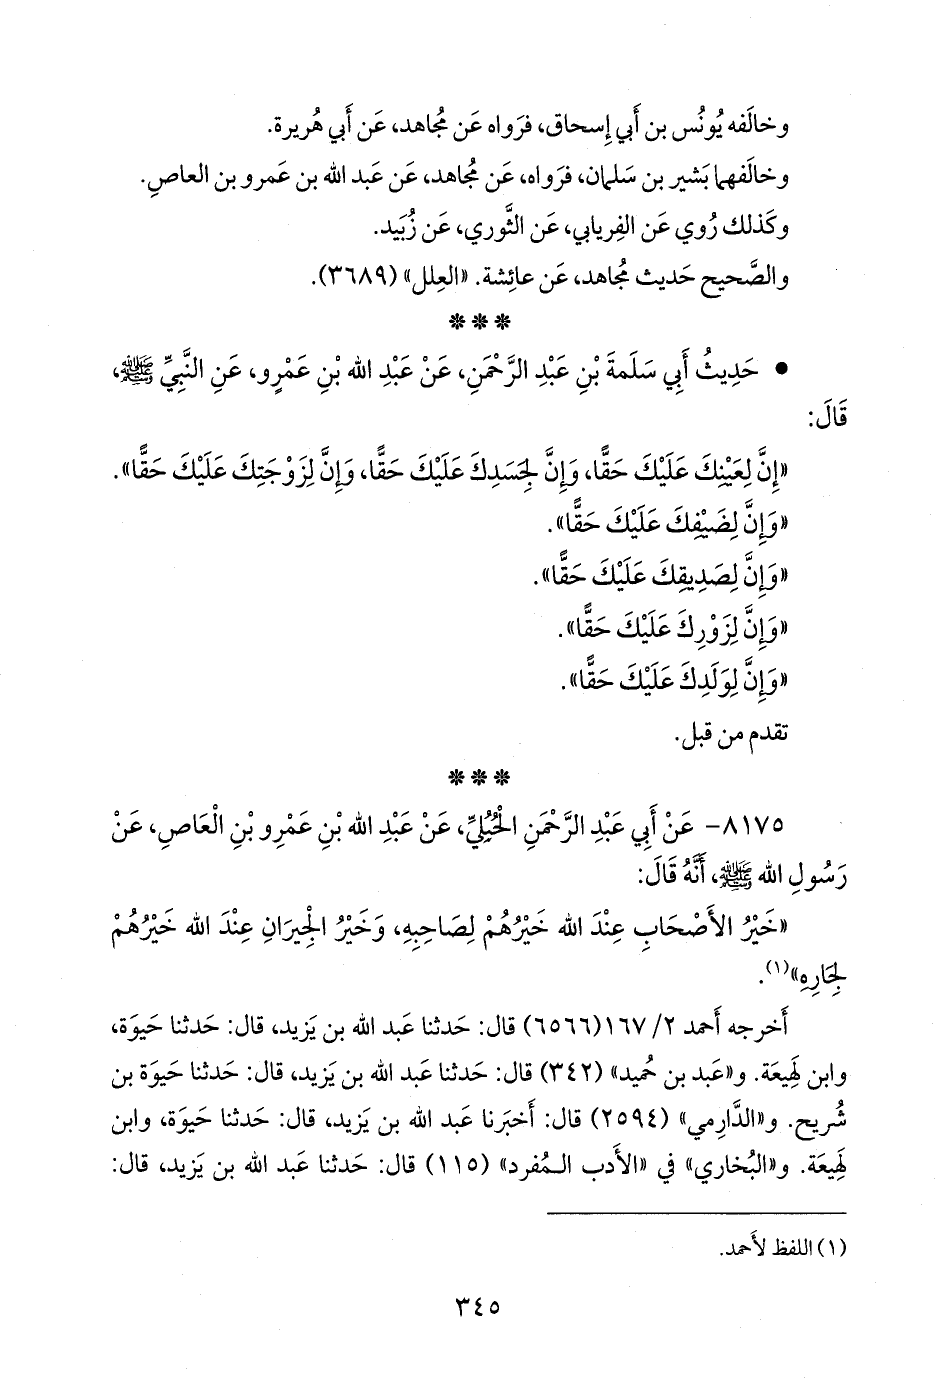 وخالَفه يُونُس بن أَبي إِسحاق، فرَواه عَن مُجاهد، عَن أَبي هُريرة.
وخالَفهما بَشير بن سَلمان، فرَواه، عَن مُجاهد، عَن عَبد الله بن عَمرو بن العاصِ.
وكَذلك رُوي عَن الفِريابي، عَن الثَّوري، عَن زُبَيد.
والصَّحيح حَديث مُجاهد، عَن عائِشة. «العِلل» (٣٦٨٩).
***
• حَدِيثُ أَبِي سَلَمةَ بْنِ عَبْدِ الرَّحْمَنِ، عَنْ عَبْدِ الله بْنِ عَمْرٍو، عَنِ النَّبِيِّ ﷺ،
قَالَ:
«إِنَّ لِعَيْنِكَ عَلَيْكَ حَقًّا، وَإِنَّ لِجَسَدِكَ عَلَيْكَ حَقًّا، وَإِنَّ لِزَوْجَتِكَ عَلَيْكَ حَقًّا».
«وَإِنَّ لِضَيْفِكَ عَلَيْكَ حَقًّا».
«وَإِنَّ لِصَدِيقِكَ عَلَيْكَ حَقًّا».
«وَإِنَّ لِزَوْرِكَ عَلَيْكَ حَقًّا».
«وَإِنَّ لِوَلَدِكَ عَلَيْكَ حَقًّا».
تقدم من قبل.
***
٨١٧٥- عَنْ أَبِي عَبْدِ الرَّحْمَنِ الْحُبُلِيِّ، عَنْ عَبْدِ الله بْنِ عَمْرِو بْنِ الْعَاصِ، عَنْ
رَسُولِ الله ﷺ، أَنَّهُ قَالَ:
«خَيْرُ الأَصْحَابِ عِنْدَ الله خَيْرُهُمْ لِصَاحِبِهِ، وَخَيْرُ الْجِيرَانِ عِنْدَ الله خَيْرُهُمْ
لِجَارِهِ»(١).
أَخرجه أَحمد ٢/ ١٦٧(٦٥٦٦) قال: حَدثنا عَبد الله بن يَزيد، قال: حَدثنا حَيوَة،
وابن لَهِيعَة. و«عَبد بن حُميد» (٣٤٢) قال: حَدثنا عَبد الله بن يَزيد، قال: حَدثنا حَيوَة بن
شُريح. و«الدَّارِمي» (٢٥٩٤) قال: أَخبَرنا عَبد الله بن يَزيد، قال: حَدثنا حَيوَة، وابن
لَهِيعَة. و«البُخاري» في «الأَدب المُفرد» (١١٥) قال: حَدثنا عَبد الله بن يَزيد، قال:
(١) اللفظ لأَحمد.
٣٤٥